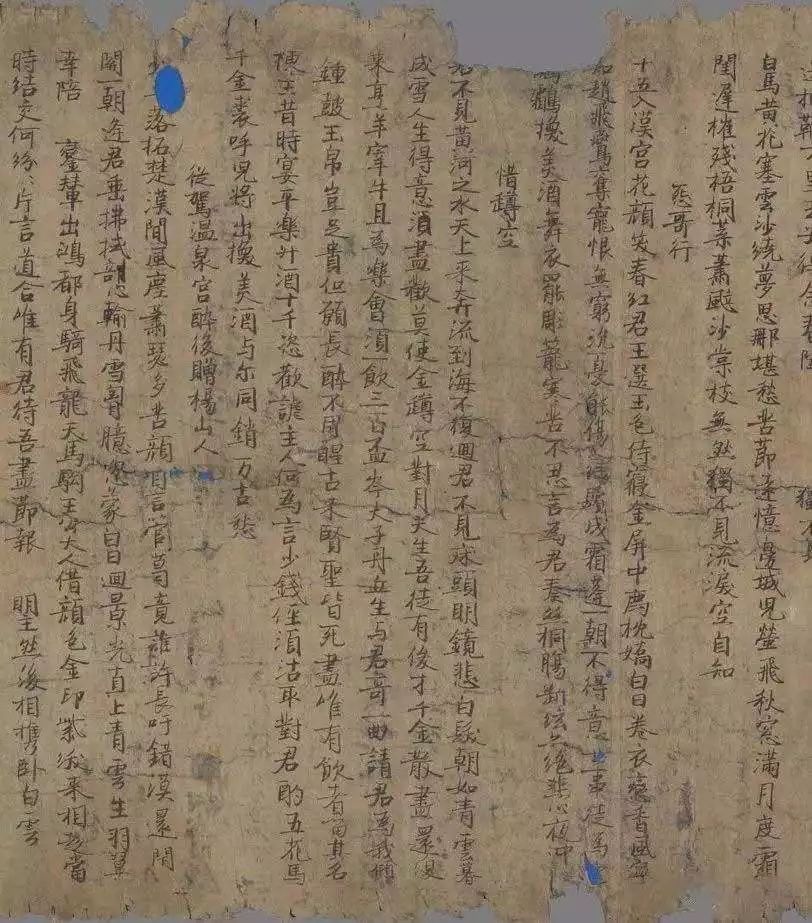 白馬黃花塞雲沙繞夢思那堪愁苦節遠憶邊城兒螢飛秋窓滿月度霜
閨遲摧殘梧桐葉蕭颼沙棠枝無然獨不見流淚空自知
怨哥行
十五入漢宮花顏笑春紅君王選玉色侍寢金屏中薦枕嬌白日卷衣戀香風寧
知趙飛鷰奪寵恨無窮沉憂能傷人綠鬢成霜蓬一朝不得意世事徒為
鸘換美酒舞衣罷雕籠寒苦不忍言為君奏絲桐腸斷絃亦絕悲心夜忡
惜罇空
君不見黃河之水天上來奔流到海不復迴君不見床頭明鏡悲白髮朝如青雲暮
成雪人生得意須盡歡莫使金罇空對月天生吾徒有俊才千金散盡還復
來烹羊宰牛且為樂會須一飲三百盃岑夫子丹丘生与君哥一曲請君為我傾
鍾鼓玉帛豈足貴但願長醉不用醒古來賢聖皆死盡唯有飲者留其名
陳王昔時宴平樂斗酒十千恣歡謔主人何為言少錢徑須沽取對君酌五花馬
千金裘呼兒將出換美酒与尔同銷万古愁
從駕溫泉宮醉後贈楊山人
少落拓楚漢間風塵蕭瑟多苦顏自言管葛竟誰許長吁錯漠還閉
關一朝逢君垂拂拭剖心輸丹雪胸臆忽蒙白日迴景光直上青雲生羽翼
幸陪 鑾輦出鴻都身騎飛龍天馬駒王公大人借顏色金印紫綬來相趨當
時結交何紛〻片言道合唯有君待吾盡節報 明主然後相攜臥白雲